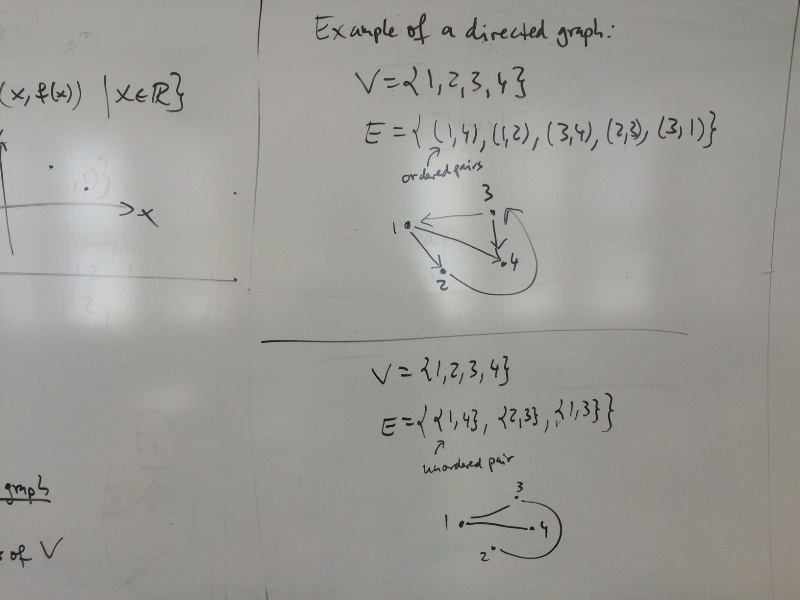 (x, f(x)) | x∈ℝ}
x
graph
s of V
Example of a directed graph:
V={1,2,3,4}
E={(1,4), (1,2), (3,4), (2,3), (3,1)}
ordered pairs
3
1
4
2
V={1,2,3,4}
E={{1,4}, {2,3}, {1,3}}
unordered pair
3
1
4
2